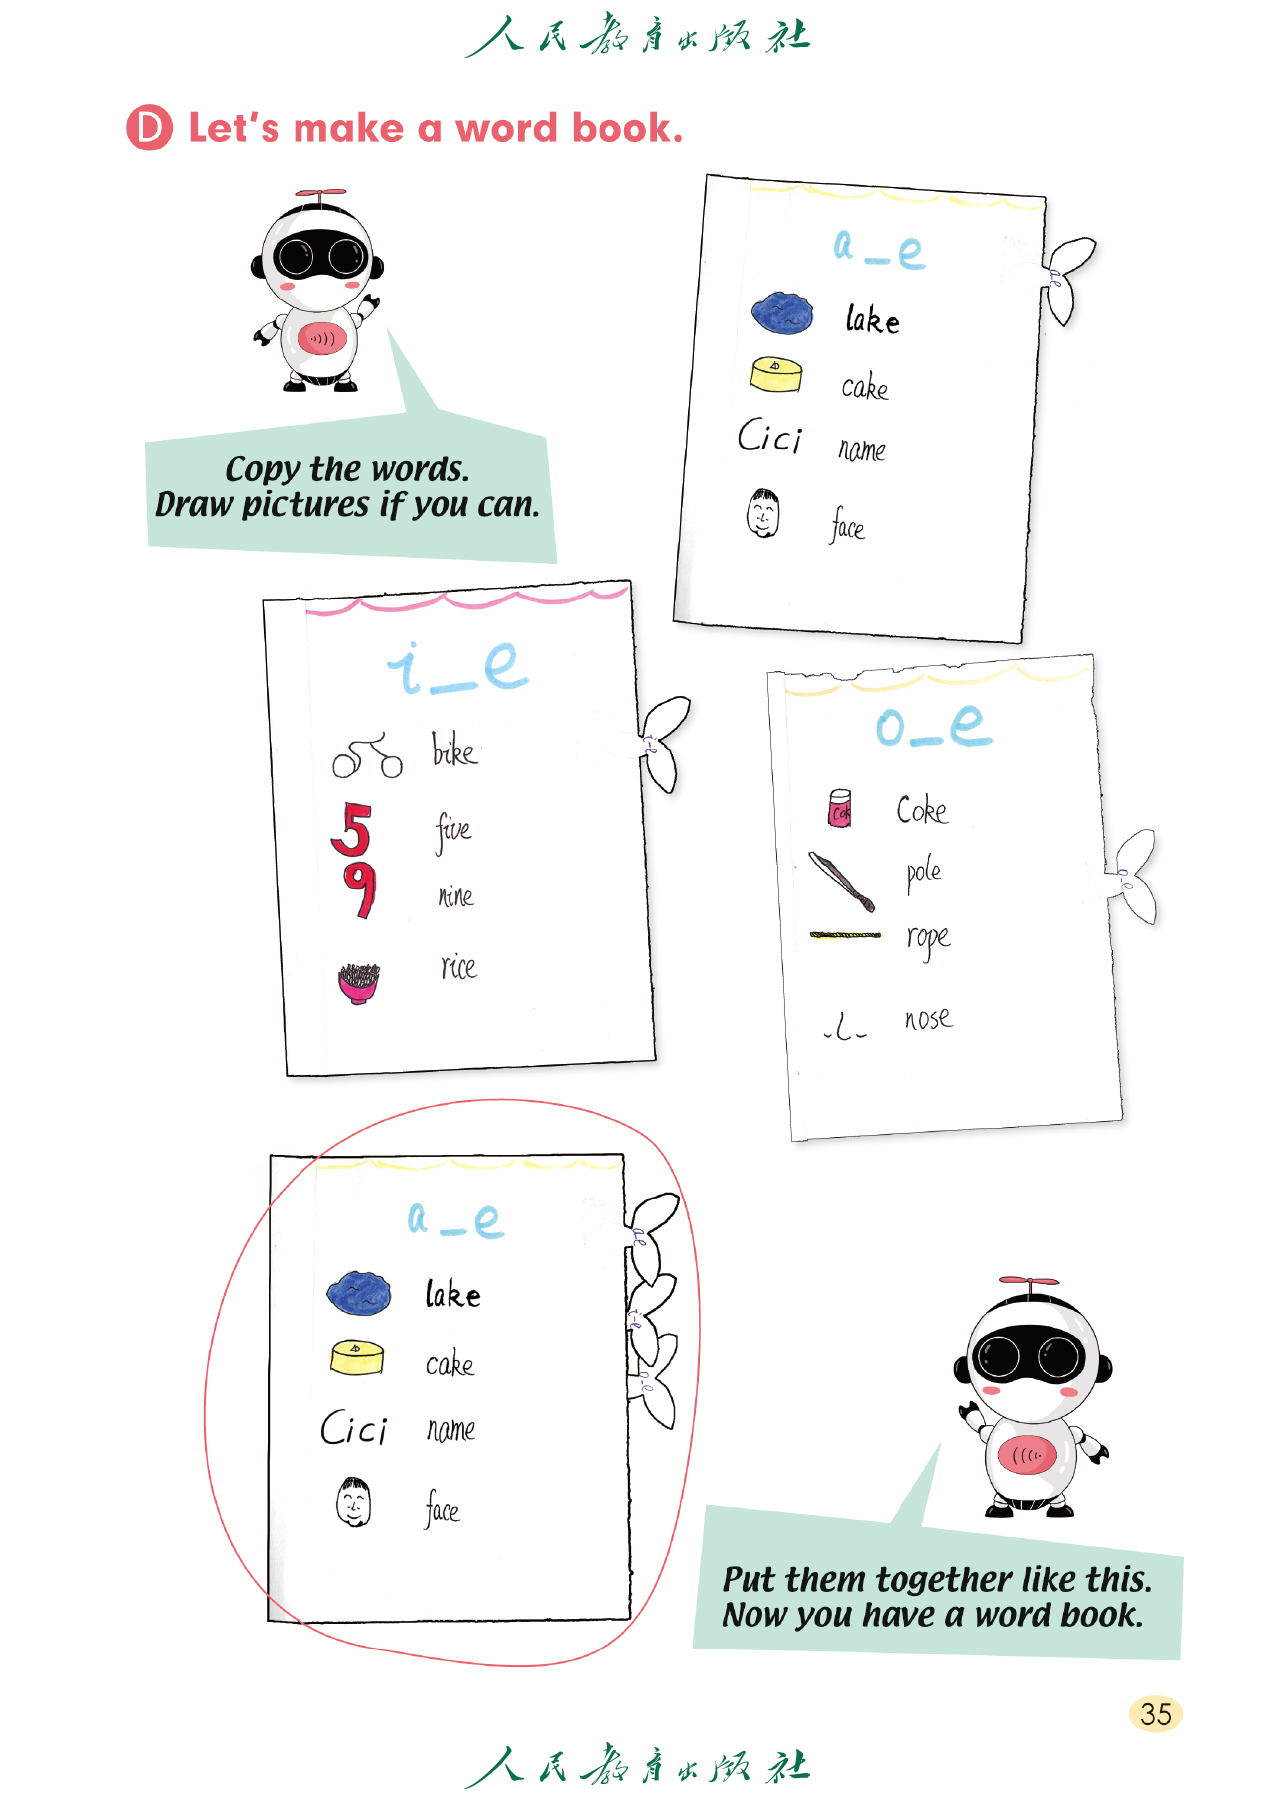 人民教育出版社
D Let's make a word book.
Copy the words.
Draw pictures if you can.
a_e
ae
lake
cake
Cici name
face
i_e
i-e
bike
5 five
9 nine
rice
o_e
o-e
Cok Coke
pole
rope
nose
a_e
ae
lake
i-e
cake
o-e
Cici name
face
Put them together like this.
Now you have a word book.
35
人民教育出版社